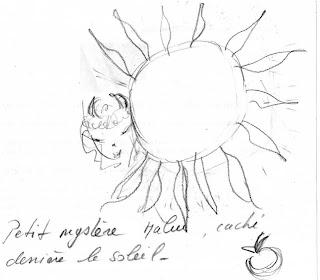 Petit mystère malin, caché
derrière le soleil.